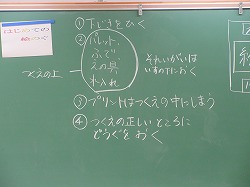 はじめての
絵のぐ
① 下じきをひく
②
パレット、
ふで
えの具
水入れ
つくえの上
それいがいは
いすの下におく
③ プリントはつくえの中にしまう
④ つくえの正しいところに
どうぐをおく